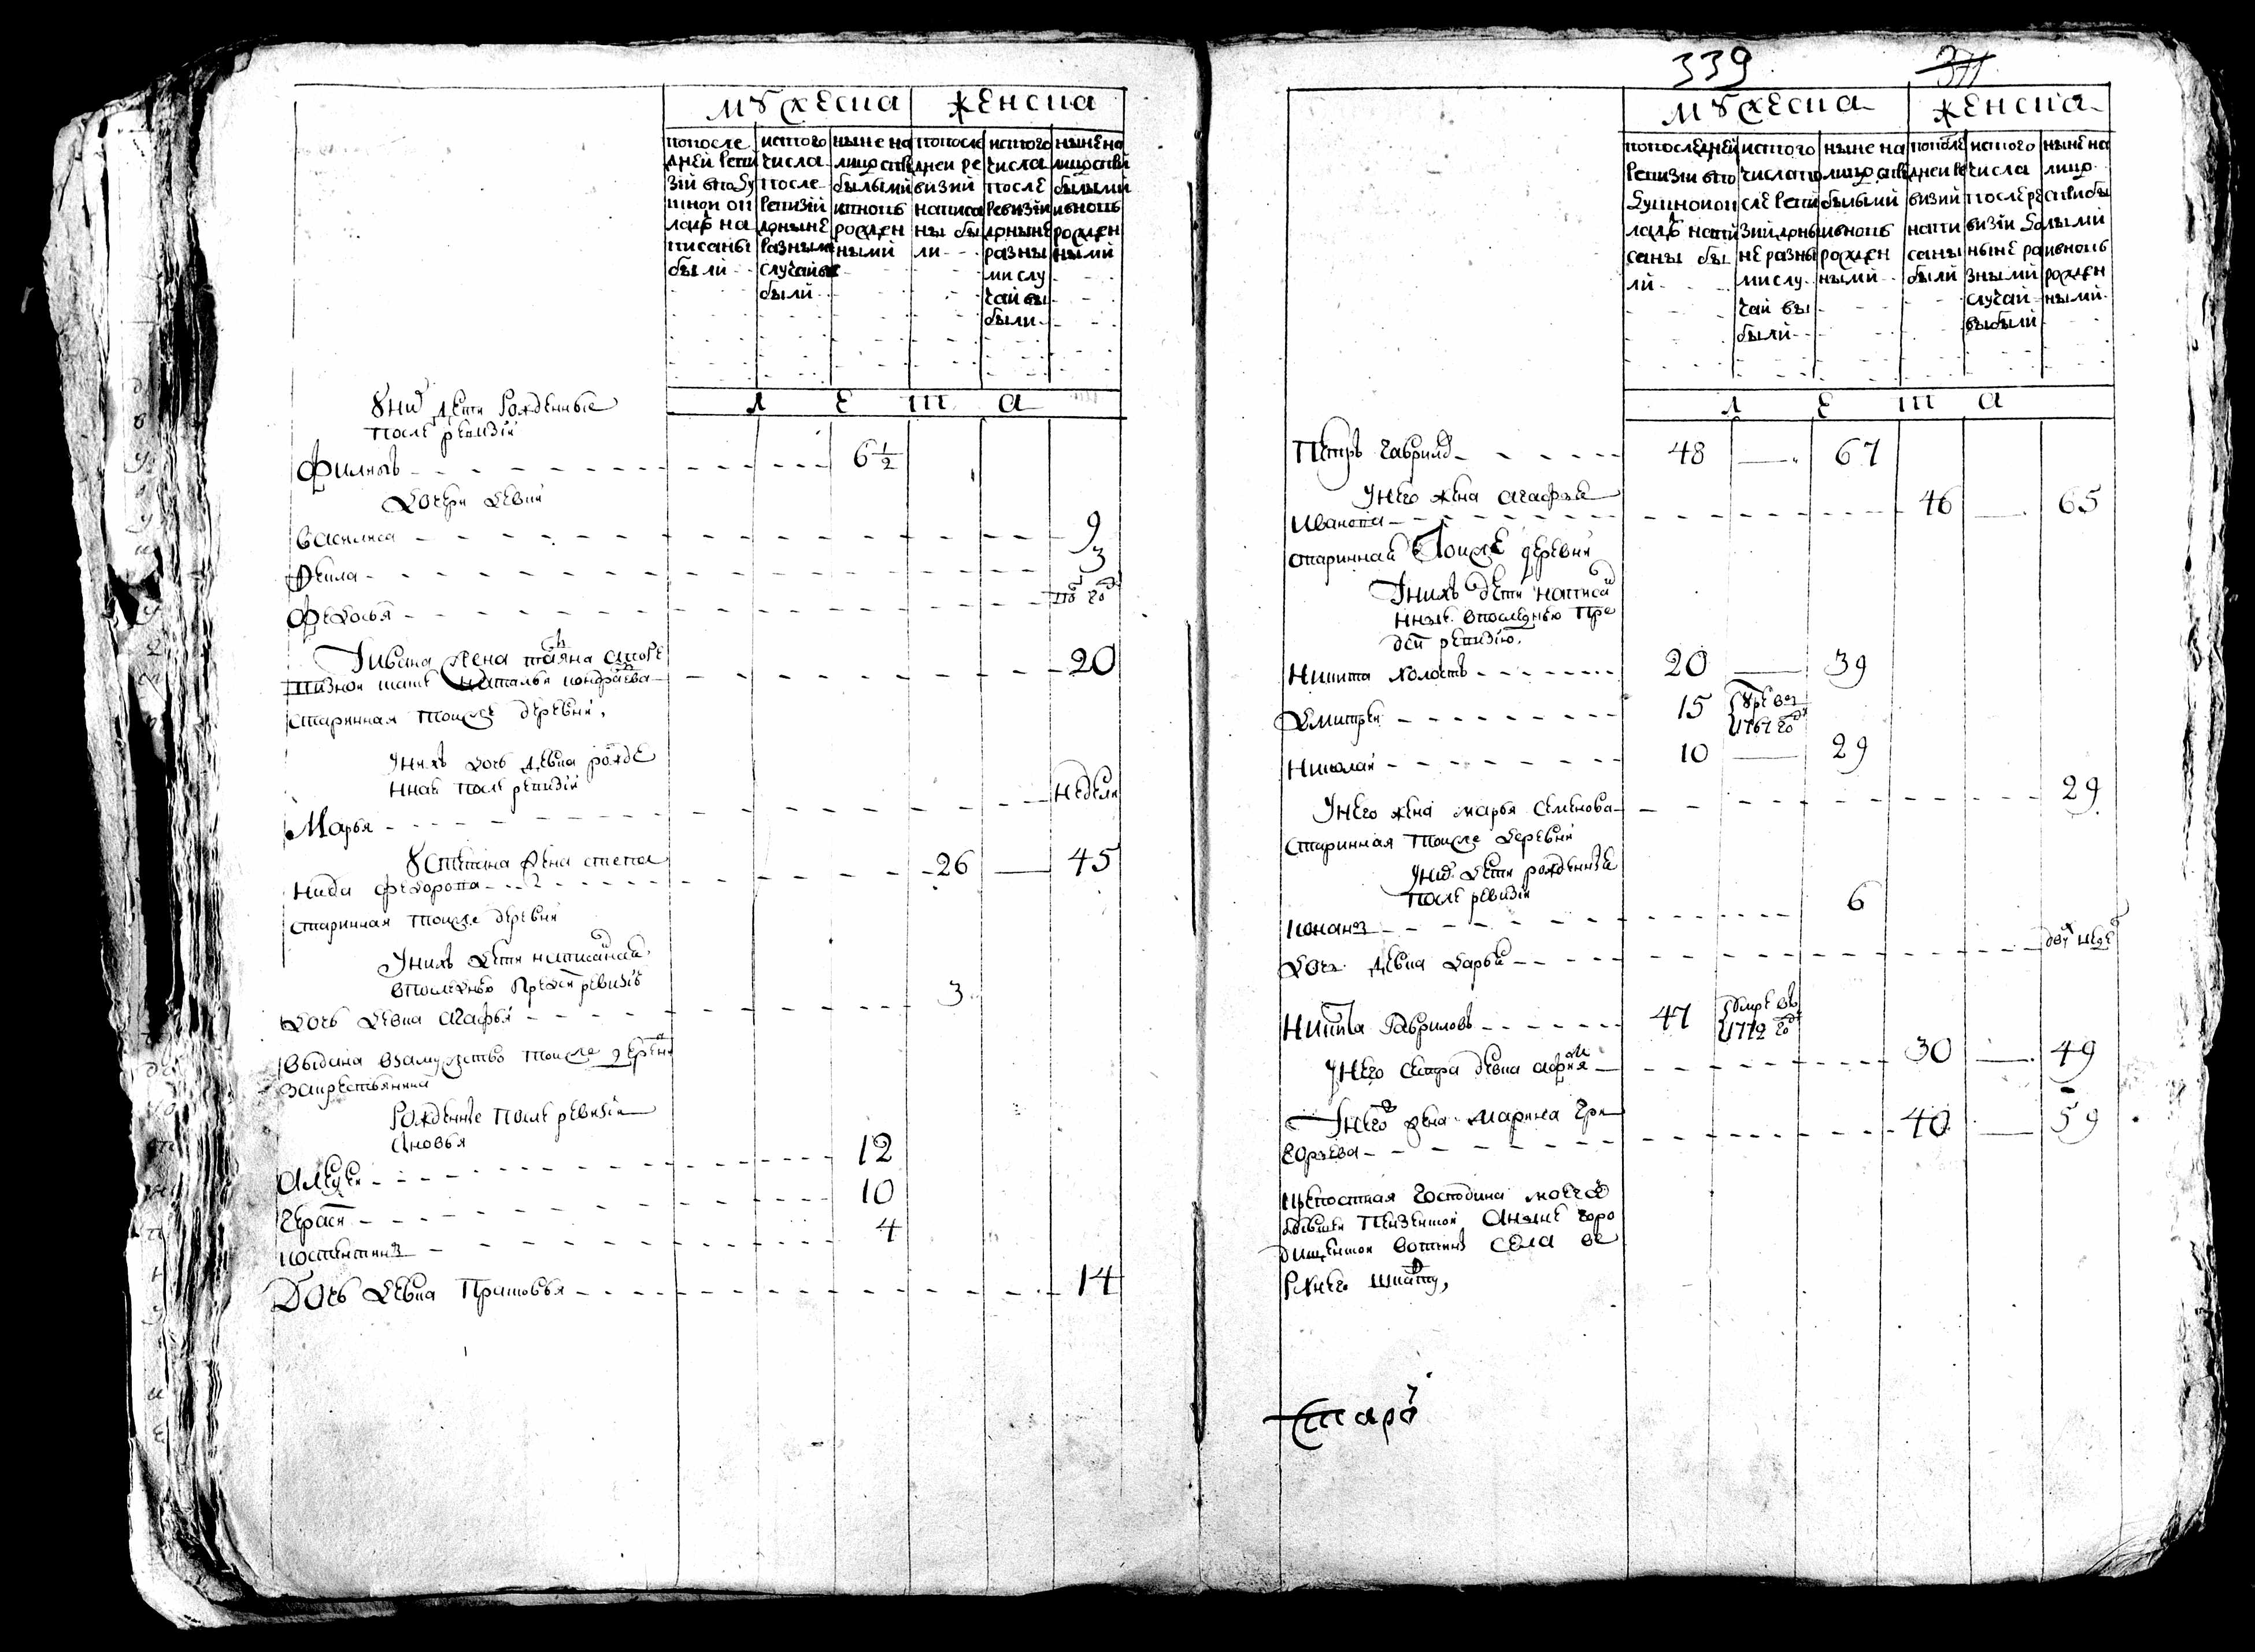 мужеска женска
попосле
дней реви
зiи вподу
шной оп
ладъ на
писаны
были
истого
числа
после
ревизiи
доныне
разными
случаи вы
были
ныне на
лицо спри
былыми
ивновь
рожден
ными
попосле
дней ре
визии
написа
ны бы
ли
истого
числа
после
ревизiи
доныне
разны
ми слу
чаи вы
были
ныне на
лицо спри
былыми
ивновь
рожден
ными
л е т а
Уних дети рожденные
после ревизiи
Филипъ 6 1/2
дочери девки
василиса 9
Фекла 3
Федосья по год
Уивана жена
наталья
старинная тойже деревни
Унихъ дочь девка рожде
нная после ревизiи
Марья недели
Устепана жена степа
нида федорова 26 45
старинная тойже деревни
Унихъ дети написаны
впоследнюю пред сей ревизiю
дочь девка агафья 3
выдана взамужство тойже деревни
закрестьянина
Рожденные после ревизiи
сновья
Алексей 12
герасим 10
костентин 4
Дочь девка Прасковья 14
339 311
мужеска женска
попоследней
ревизiи впо
душной оп
ладъ напи
саны бы
ли
истого
числа по
сле реви
зии доны
не разны
ми слу
чаи вы
были
ныне на
лицо спри
былыми
ивновь
рожден
ными
попосле
дней ре
визии
напи
саны
были
истого
числа
после ре
визiи до
ныне ра
зными
случаи
выбыли
ныне на
лицо
сприбы
лыми
ивновь
рожден
ными
л е т а
Петръ гаврилов 48 67
Унего жена агафья
Иванова 46 65
старинная тойже деревни
Унихъ дети написа
нные впоследнюю пре
дсей ревизiю
Никита холостъ 20 39
Дмитрей 15 умре в 1767 год
Николай 10 29
Унего жена марья семенова 29
старинная тойже деревни
Уних дети рожденные
после ревизiи
конан 6
дочь девка дарья дву неде
Никита Гавриловъ 47 умре въ 1772 год
Унего сестра девка 30 49
Унего жена Марина гри
горьева 40 59
крепостная господина моего
бывшей пензенской аныне горо
дищенской вотчины села ве
рхнего шкафту,
Старо